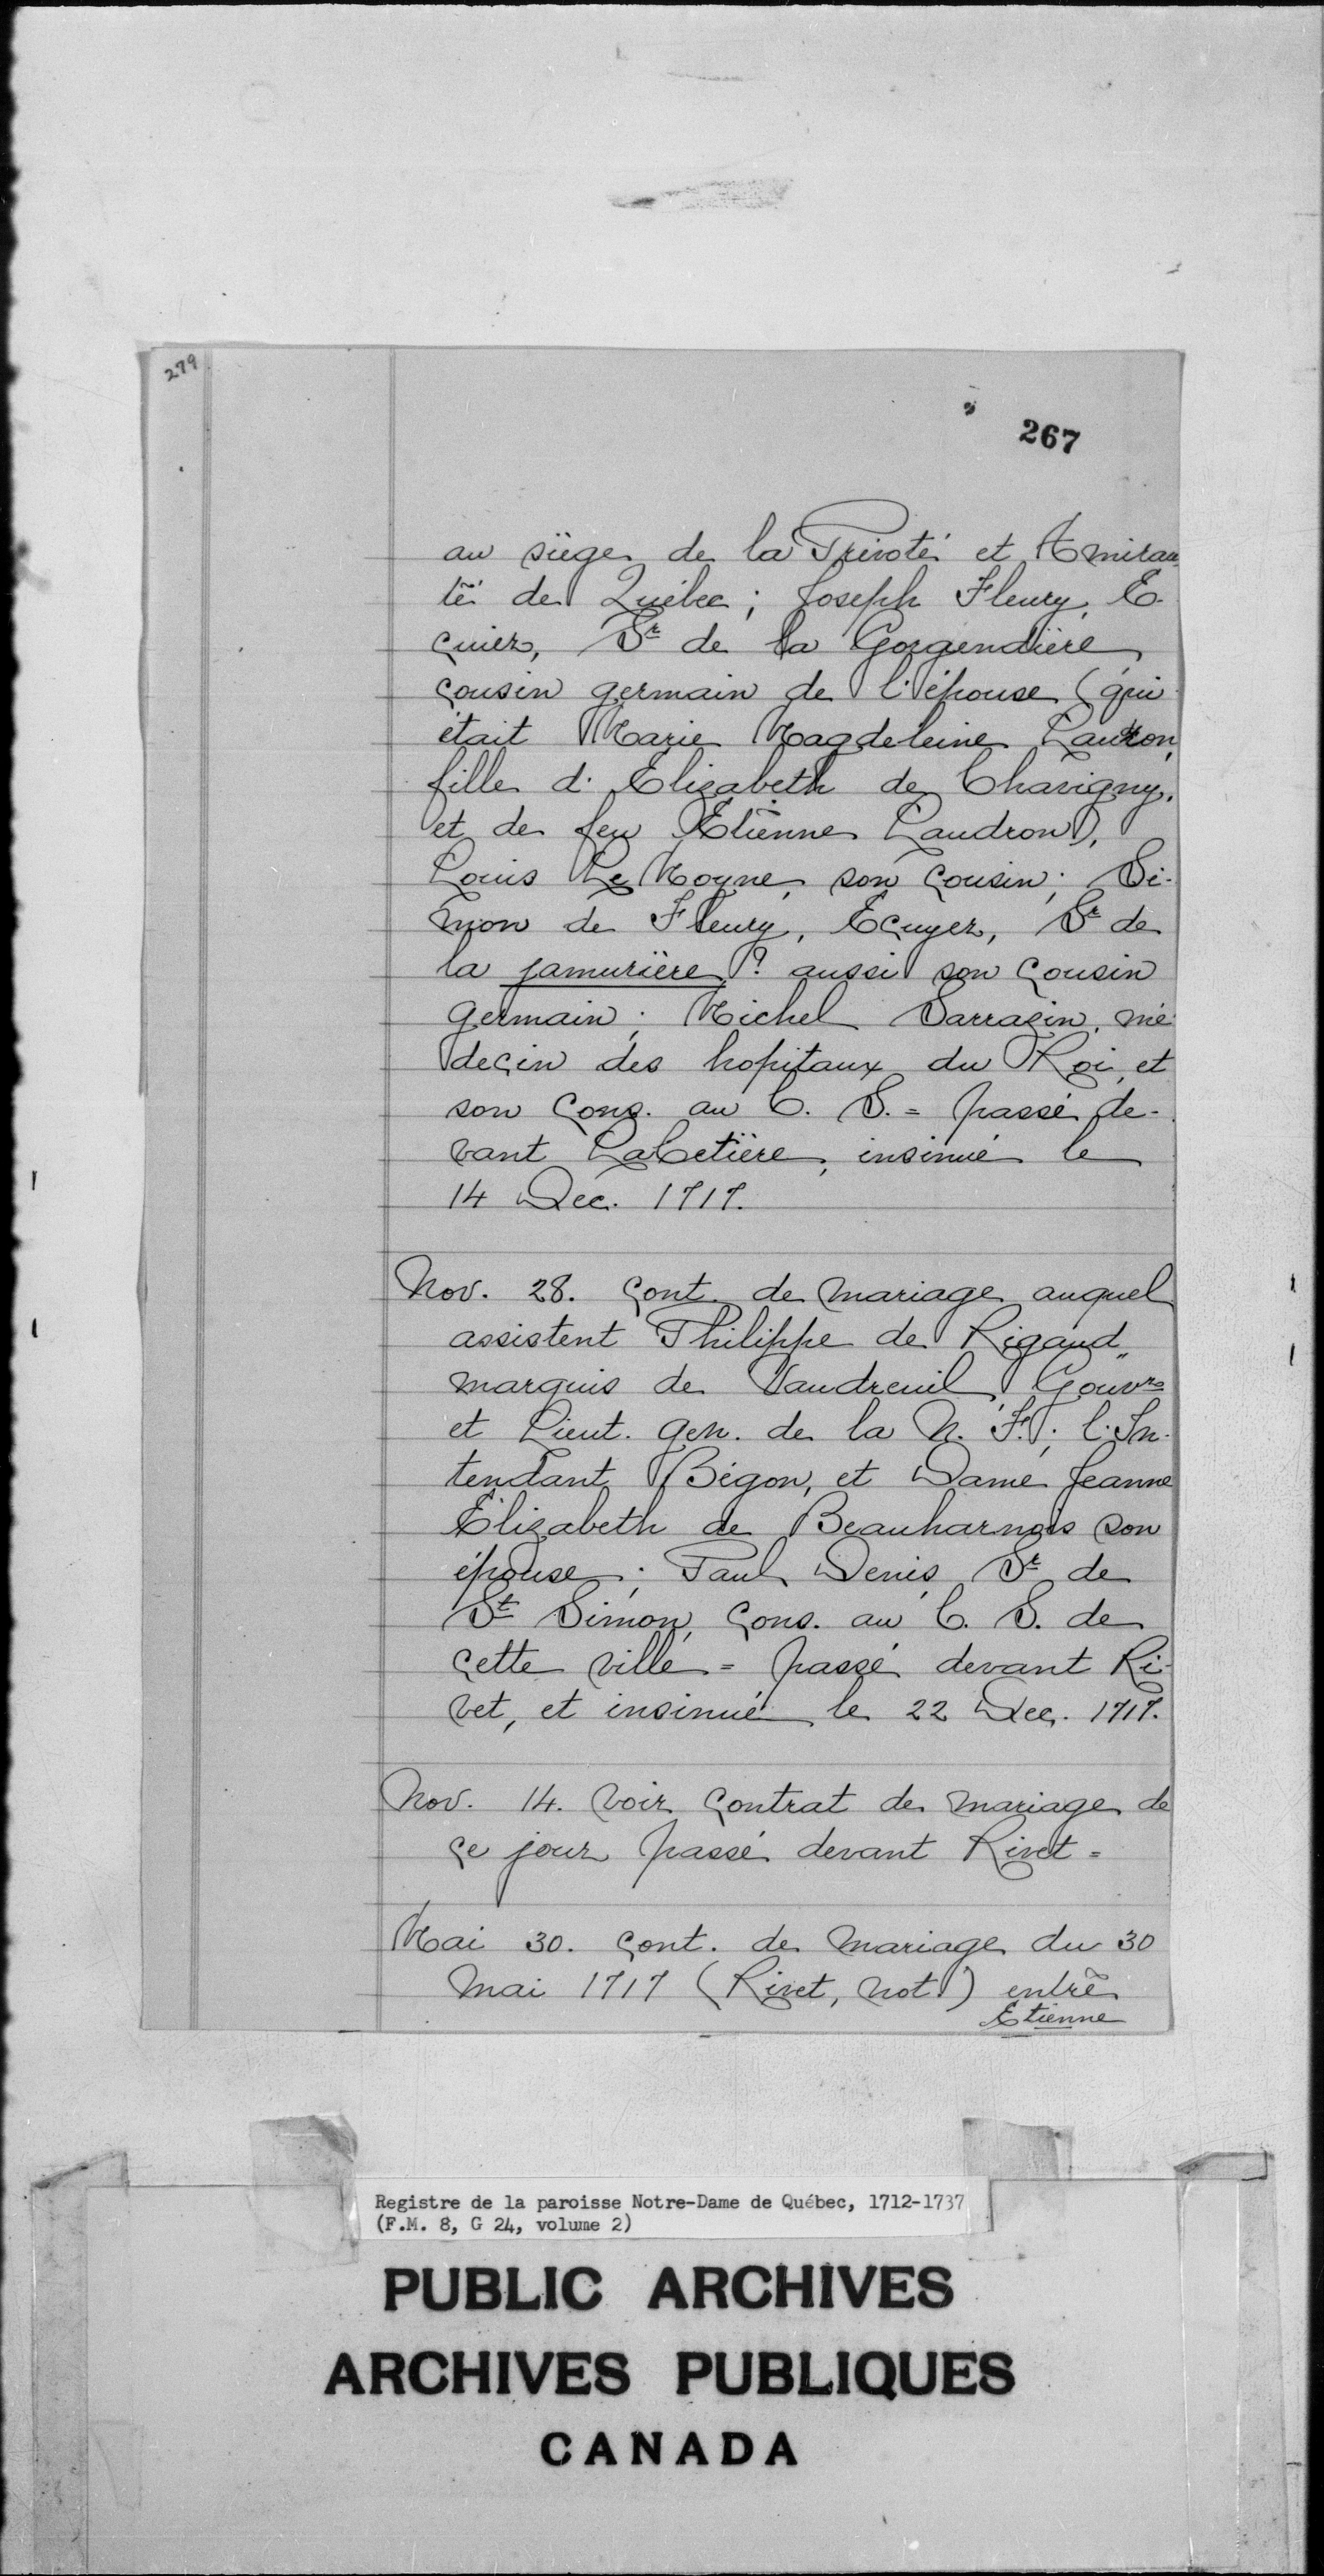 279
267
au siège de la Prévoté et Amirau-
té de Québec ; Joseph Fleury, E-
cuier, Sr de la Gorgendière,
cousin germain de l'épouse (qui
était Marie Magdeleine Landron,
fille d'Elizabeth de Chavigny,
et de feu Etienne Landron),
Louis Le Moyne, son cousin; Si-
mon de Fleury, Ecuyer, Sr de
la jamurière ? aussi son cousin
germain; Michel Sarrazin, mé-
decin des hopitaux du Roi, et
son cons. au C. S. = passé de-
vant LaCetière, insinué le
14 Dec. 1717.
Nov. 28. Cont. de mariage auquel
assistent Philippe de Rigaud,
marquis de Vaudreuil, Gouvr
et Lieut. gen. de la N. F.; l'In-
tendant Bégon, et Dame Jeanne
Elizabeth de Beauharnois son
épouse; Paul Denis, Sr de
St Simon, cons. au C. S. de
cette ville = passé devant Ri-
vet, et insinué le 22 Dec. 1717.
Nov. 14. Voir contrat de mariage de
ce jour passé devant Rivet =
Mai 30. Cont. de mariage du 30
Mai 1717 (Rivet, not.) entre
Etienne
Registre de la paroisse Notre-Dame de Québec, 1712-1737
(F.M. 8, G 24, volume 2)
PUBLIC ARCHIVES
ARCHIVES PUBLIQUES
CANADA